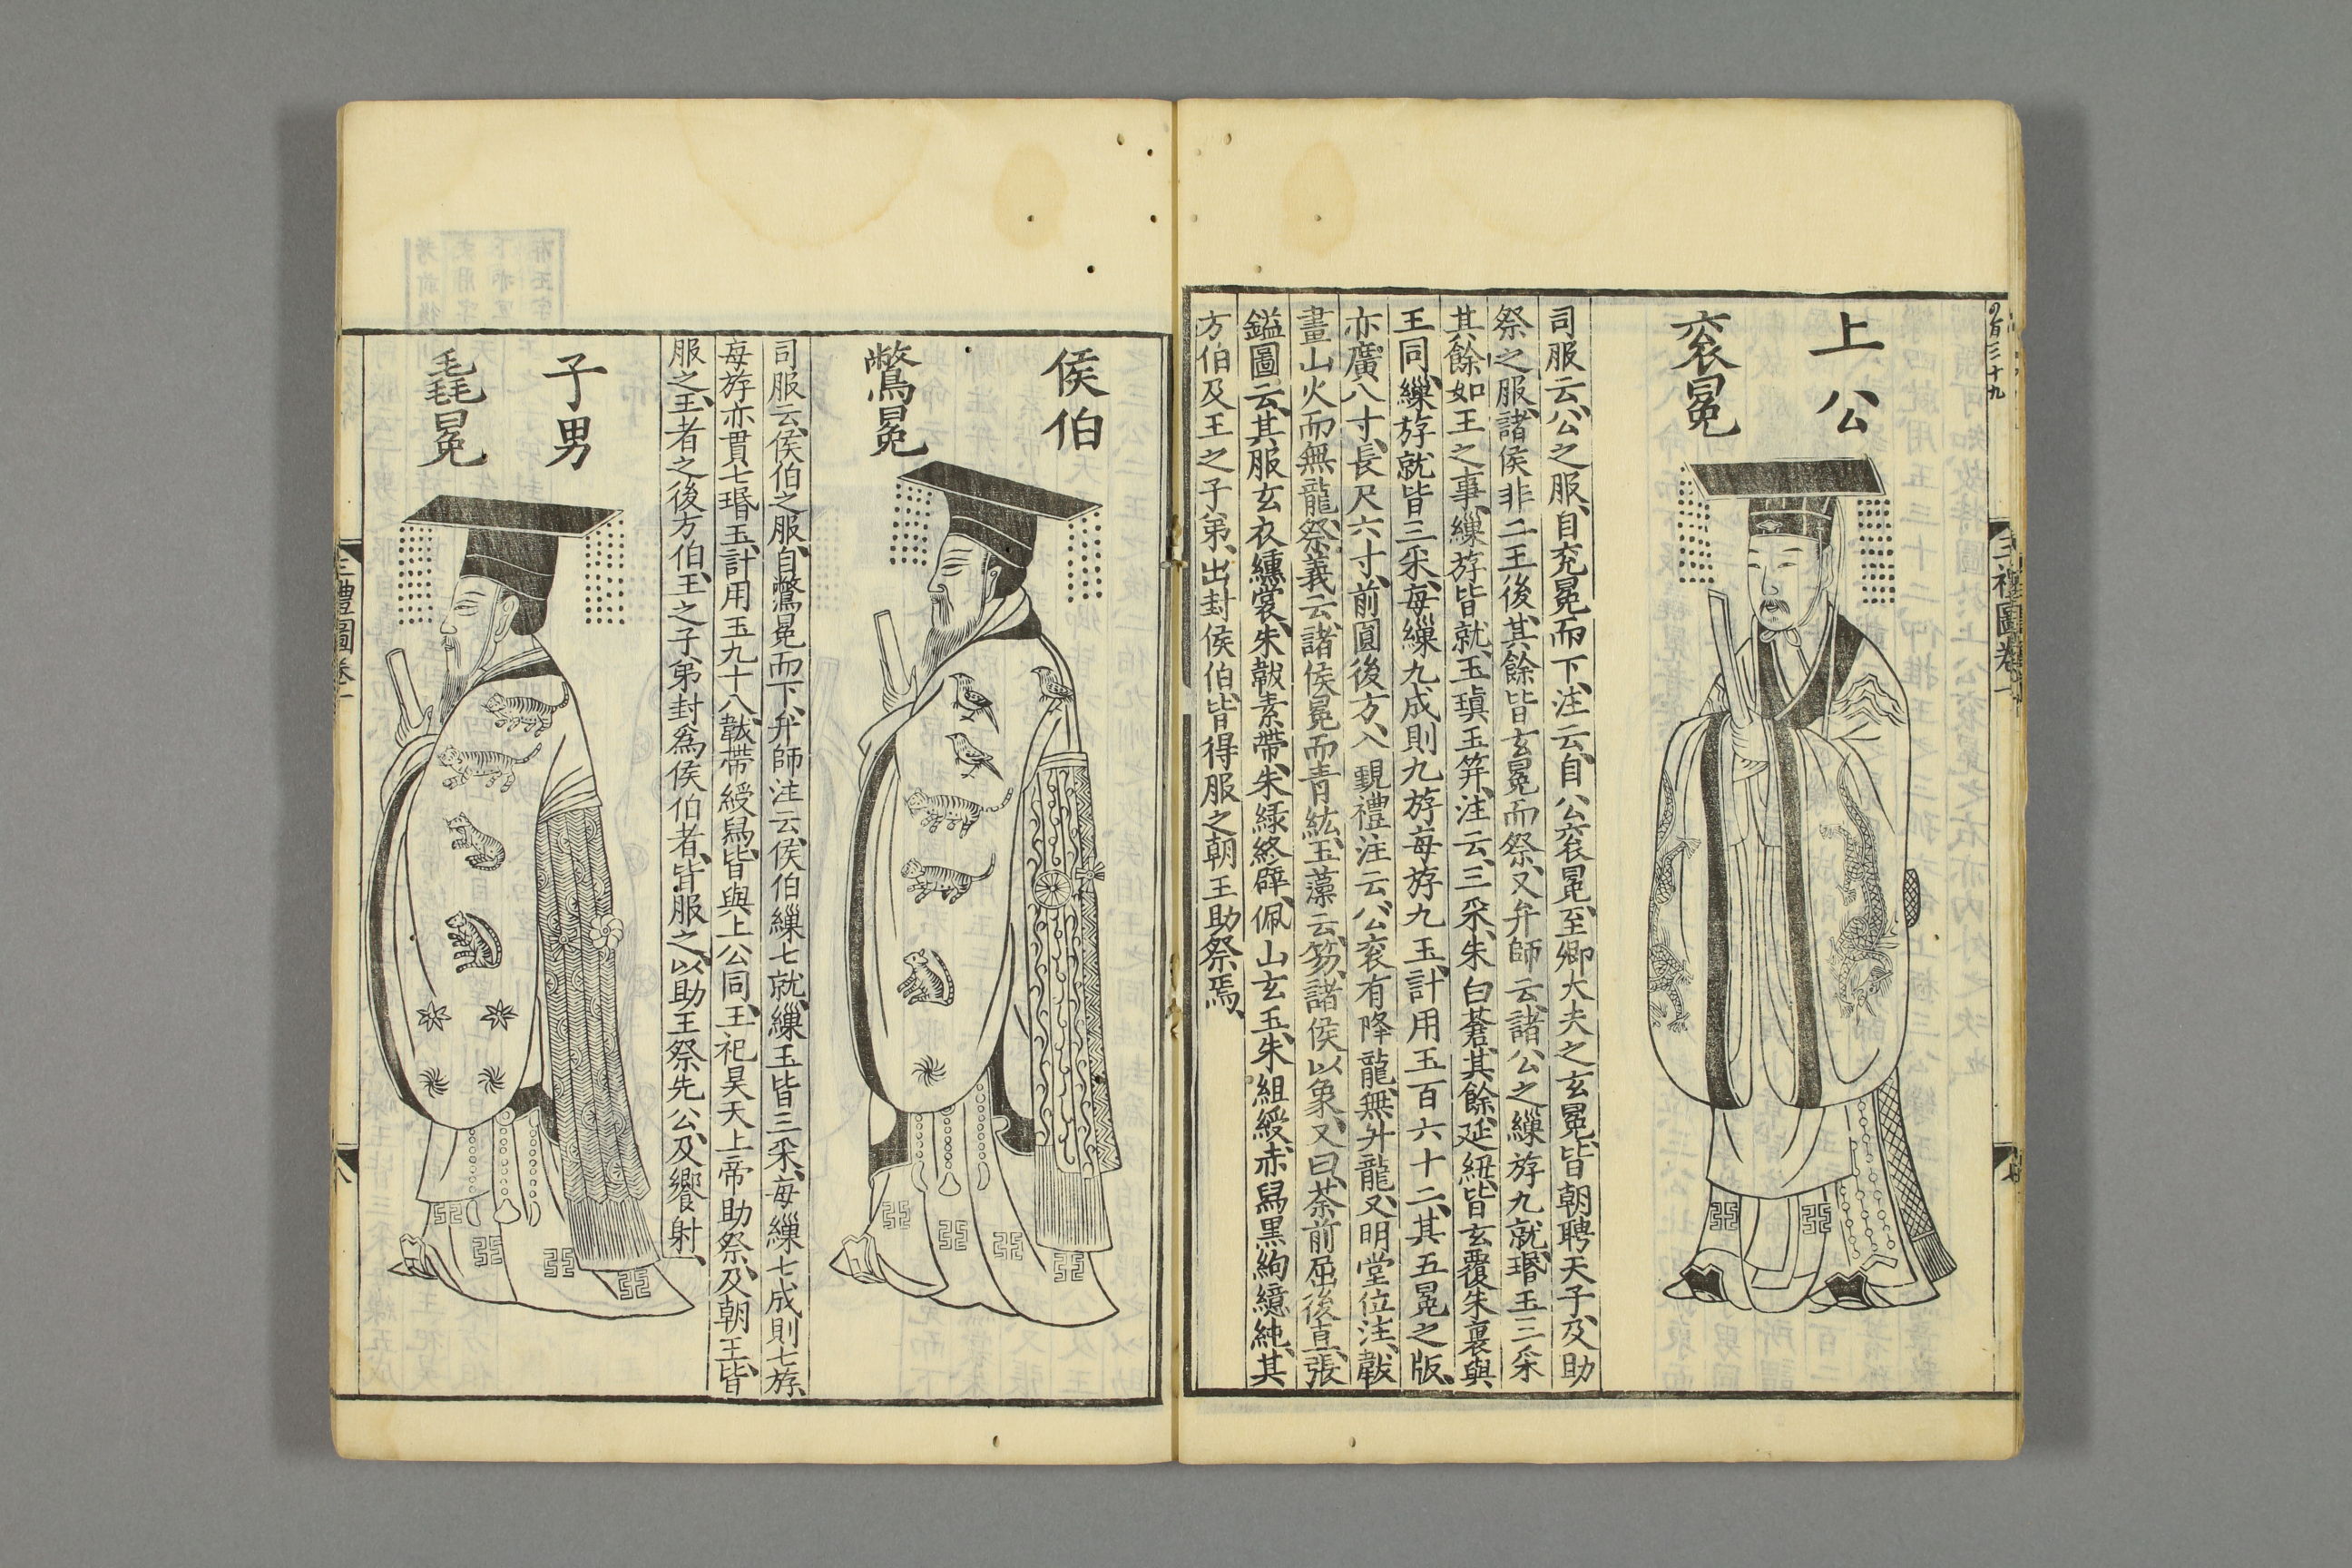 上公
衮冕
司服云、公之服、自衮冕而下、注云、自公衮冕、至卿大夫之玄冕、皆朝聘天子、及助
祭之服、諸侯非二王後、其餘皆玄冕而祭、又弁師云、諸公之繅斿九就、瑉玉三采
其餘如王之事、繅斿皆就、玉瑱玉笄、注云、三采、朱白蒼、其餘、延紐、皆玄覆朱裏與
王同、繅斿就皆三采、每繅九成則九斿每斿九玉、計用玉百六十二、其五冕之版、
亦廣八寸、長尺六寸、前圓後方、入覲禮注云、公衮有降龍、無升龍、又明堂位注、韍
畫山火而無龍、祭義云、諸侯冕而青紘、玉藻云、笏、諸侯以象、又曰、荼前屈後直、張
鎰圖云、其服玄衣纁裳、朱韍素帶、朱綠終辟、佩山玄玉、朱組綬、赤舄黑絇繶純、其
方伯及王之子弟、出封侯伯、皆得服之朝王助祭焉、
三禮圖卷一
侯伯
鷩冕
司服云、侯伯之服、自鷩冕而下、弁師注云、侯伯繅七就、繅玉皆三采、每繅七成則七斿、
每斿亦貫七瑉玉、計用玉九十八、韍帶綬舄、皆與上公同、王祀昊天上帝助祭、及朝王、皆
服之、王者之後方伯、王之子弟封爲侯伯者、皆服之、以助王祭先公、及饗射、
子男
毳冕
三禮圖卷一
八